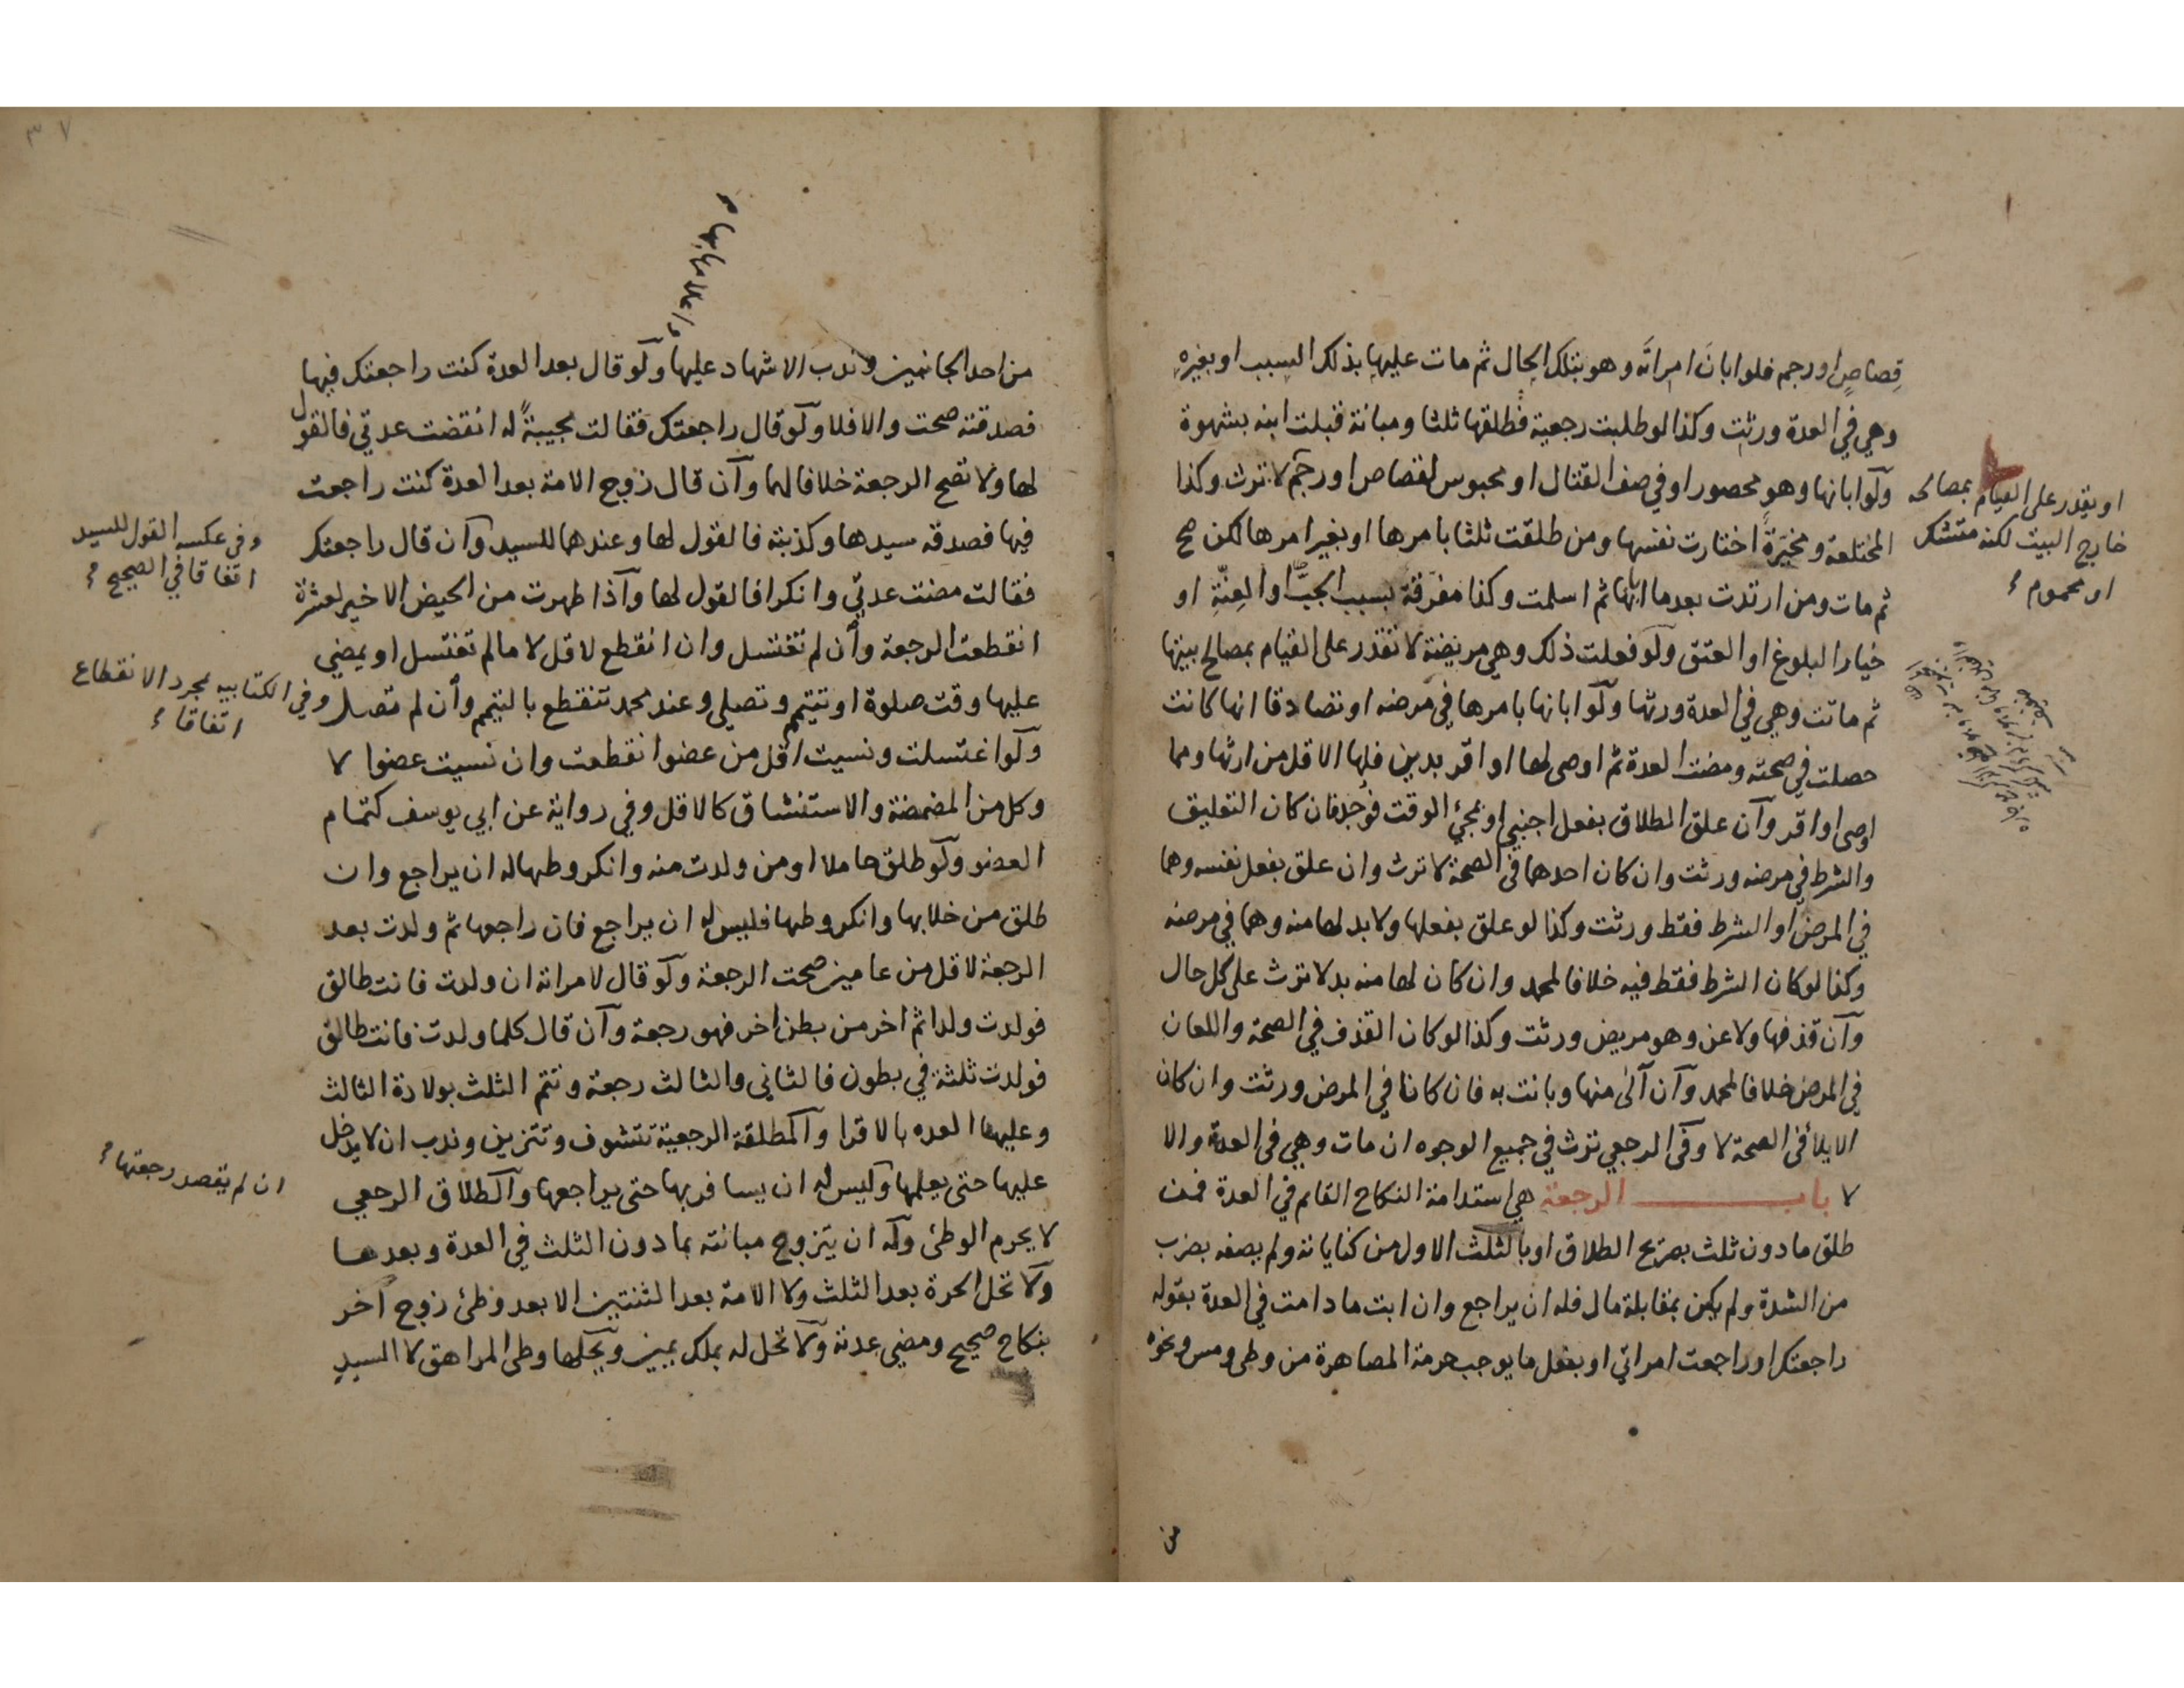 قِصَاصٍ او رجم فلو ابانَ امراتَه وهو بتلك الحال ثم مات عليها بذلك السبب او بغيرهِ
وهي في العدة ورثت وكذا لو طلبت رجعية فطلقها ثلثا ومبانة قبلت ابنه بشهوة
ولو ابانها وهو محصور او في صف القتال او محبوس لقصاص او رجم لا ترث وكذا
المختلعة ومخيرةً اختارت نفسها ومن طلقت ثلثا بامرها او بغير امرها لكن صح
ثم مات ومن ارتدت بعد ما ابانها ثم اسلمت وكذا مفرقة بسبب الجبّ او العنّةِ او
خيار البلوغ او العتق ولو فعلت ذلك وهي مريضة لا تقدر على القيام بمصالح بيتها
ثم ماتت وهي في العدة ورثها ولو ابانها بامرها في مرضه او تصادقا انها كانت
حصلت في صحته ومضت العدة ثم اوصى لها او اقر بدين فلها الاقل من ارثها ومما
اوصى او اقر وآن علق الطلاق بفعل اجنبي او بمجئ الوقت فوُجد فان كان التعليق
والشرط في مرضه ورثت وان كان احدهما في الصحة لا ترث وان علق بفعل نفسه وهما
في المرض او الشرط فقط ورثت وكذا لو علق بفعلها ولا بد لها منه وهما في مرضه
وكذا لو كان الشرط فقط فيه خلافا لمحمد وان كان لها منه بد لا ترث على كل حال
وآن قذفها ولاعن وهو مريض ورثت وكذا لو كان القذف في الصحة واللعان
في المرض خلافا لمحمد وآن آلى منها وبانت به فان كانا في المرض ورثت وان كان
الايلاء في الصحة لا وفي الرجعي ترث في جميع الوجوه ان مات وهي في العدة والا
لا باب الرجعة هي استدامة النكاح القائم في العدة فمن
طلق ما دون ثلث بصريح الطلاق او بالثلث الاول من كناياته ولم يصفه بضرب
من الشدة ولم يكن بمقابلة مال فله ان يراجع وان ابت ما دامت في العدة بقوله
راجعتك او راجعت امراتي او بفعل ما يوجب حرمة المصاهرة من وطى ومس ونحوه
من
او يقدر على القيام بمصالحه
خارج البيت لكنه متشكى
او محموم
٣٧
واعلامها بها
من احد الجانبين وندب الاشهاد عليها ولو قال بعد العدة كنت راجعتك فيها
فصدقته صحت والا فلا ولو قال راجعتك فقالت مجيبةً له انقضت عدتي فالقول
لها ولا تصح الرجعة خلافا لهما وآن قال زوج الامة بعد العدة كنت راجعت
فيها فصدقه سيدها وكذبته فالقول لها وعندهما للسيد وآن قال راجعتك
فقالت مضت عدتي وانكرا فالقول لها وآذا طهرت من الحيض الاخير لعشرة
انقطعت الرجعة وأن لم تغتسل وان انقطع لاقل لا ما لم تغتسل او يمضي
عليها وقت صلوة او تتيمم وتصلي وعند محمد تنقطع بالتيمم وأن لم تصل
ولو اغتسلت ونسيت اقل من عضو انقطعت وان نسيت عضوا لا
وكل من المضمضة والاستنشاق كالاقل وفي رواية عن ابي يوسف كتمام
العضو ولو طلق حاملا او من ولدت منه وانكر وطيها له ان يراجع وان
طلق من خلا بها وانكر وطيها فليس له ان يراجع فان راجعها ثم ولدت بعد
الرجعة لاقل من عامين صحت الرجعة ولو قال لامراته ان ولدت فانت طالق
فولدت ولدا ثم اخر من بطن اخر فهو رجعة وآن قال كلما ولدت فانت طالق
فولدت ثلثة في بطون فالثاني والثالث رجعة وتتم الثلث بولادة الثالث
وعليها العده بالاقرا والمطلقة الرجعية تتشوف وتتزين وندب ان لا يدخل
عليها حتى يعلمها وليس له ان يسافر بها حتى يراجعها والطلاق الرجعي
لا يحرم الوطئ وله ان يتزوج مبانته بما دون الثلث في العدة وبعدها
ولا تحل الحرة بعد الثلث ولا الامة بعد الثنتين الا بعد وطئ زوج آخر
بنكاح صحيح ومضي عدته ولا تحل له بملك يمين ويحلها وطى المراهق لا السيد
وفي عكسه القول للسيد
اتفاقا في الصحيح
وفي الكتابيه بمجرد الانقطاع
اتفاقا
ان لم يقصد رجعتها